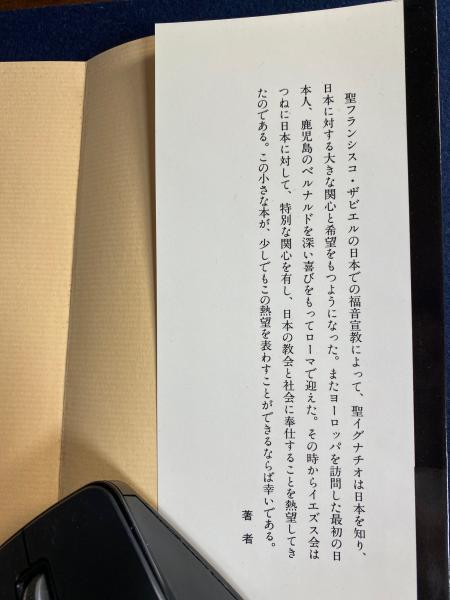 聖フランシスコ・ザビエルの日本での福音宣教によって、聖イグナチオは日本を知り、
日本に対する大きな関心と希望をもつようになった。またヨーロッパを訪問した最初の日
本人、鹿児島のベルナルドを深い喜びをもってローマで迎えた。その時からイエズス会は
つねに日本に対して、特別な関心を有し、日本の教会と社会に奉仕することを熱望してき
たのである。この小さな本が、少しでもこの熱望を表わすことができるならば幸いである。
著者